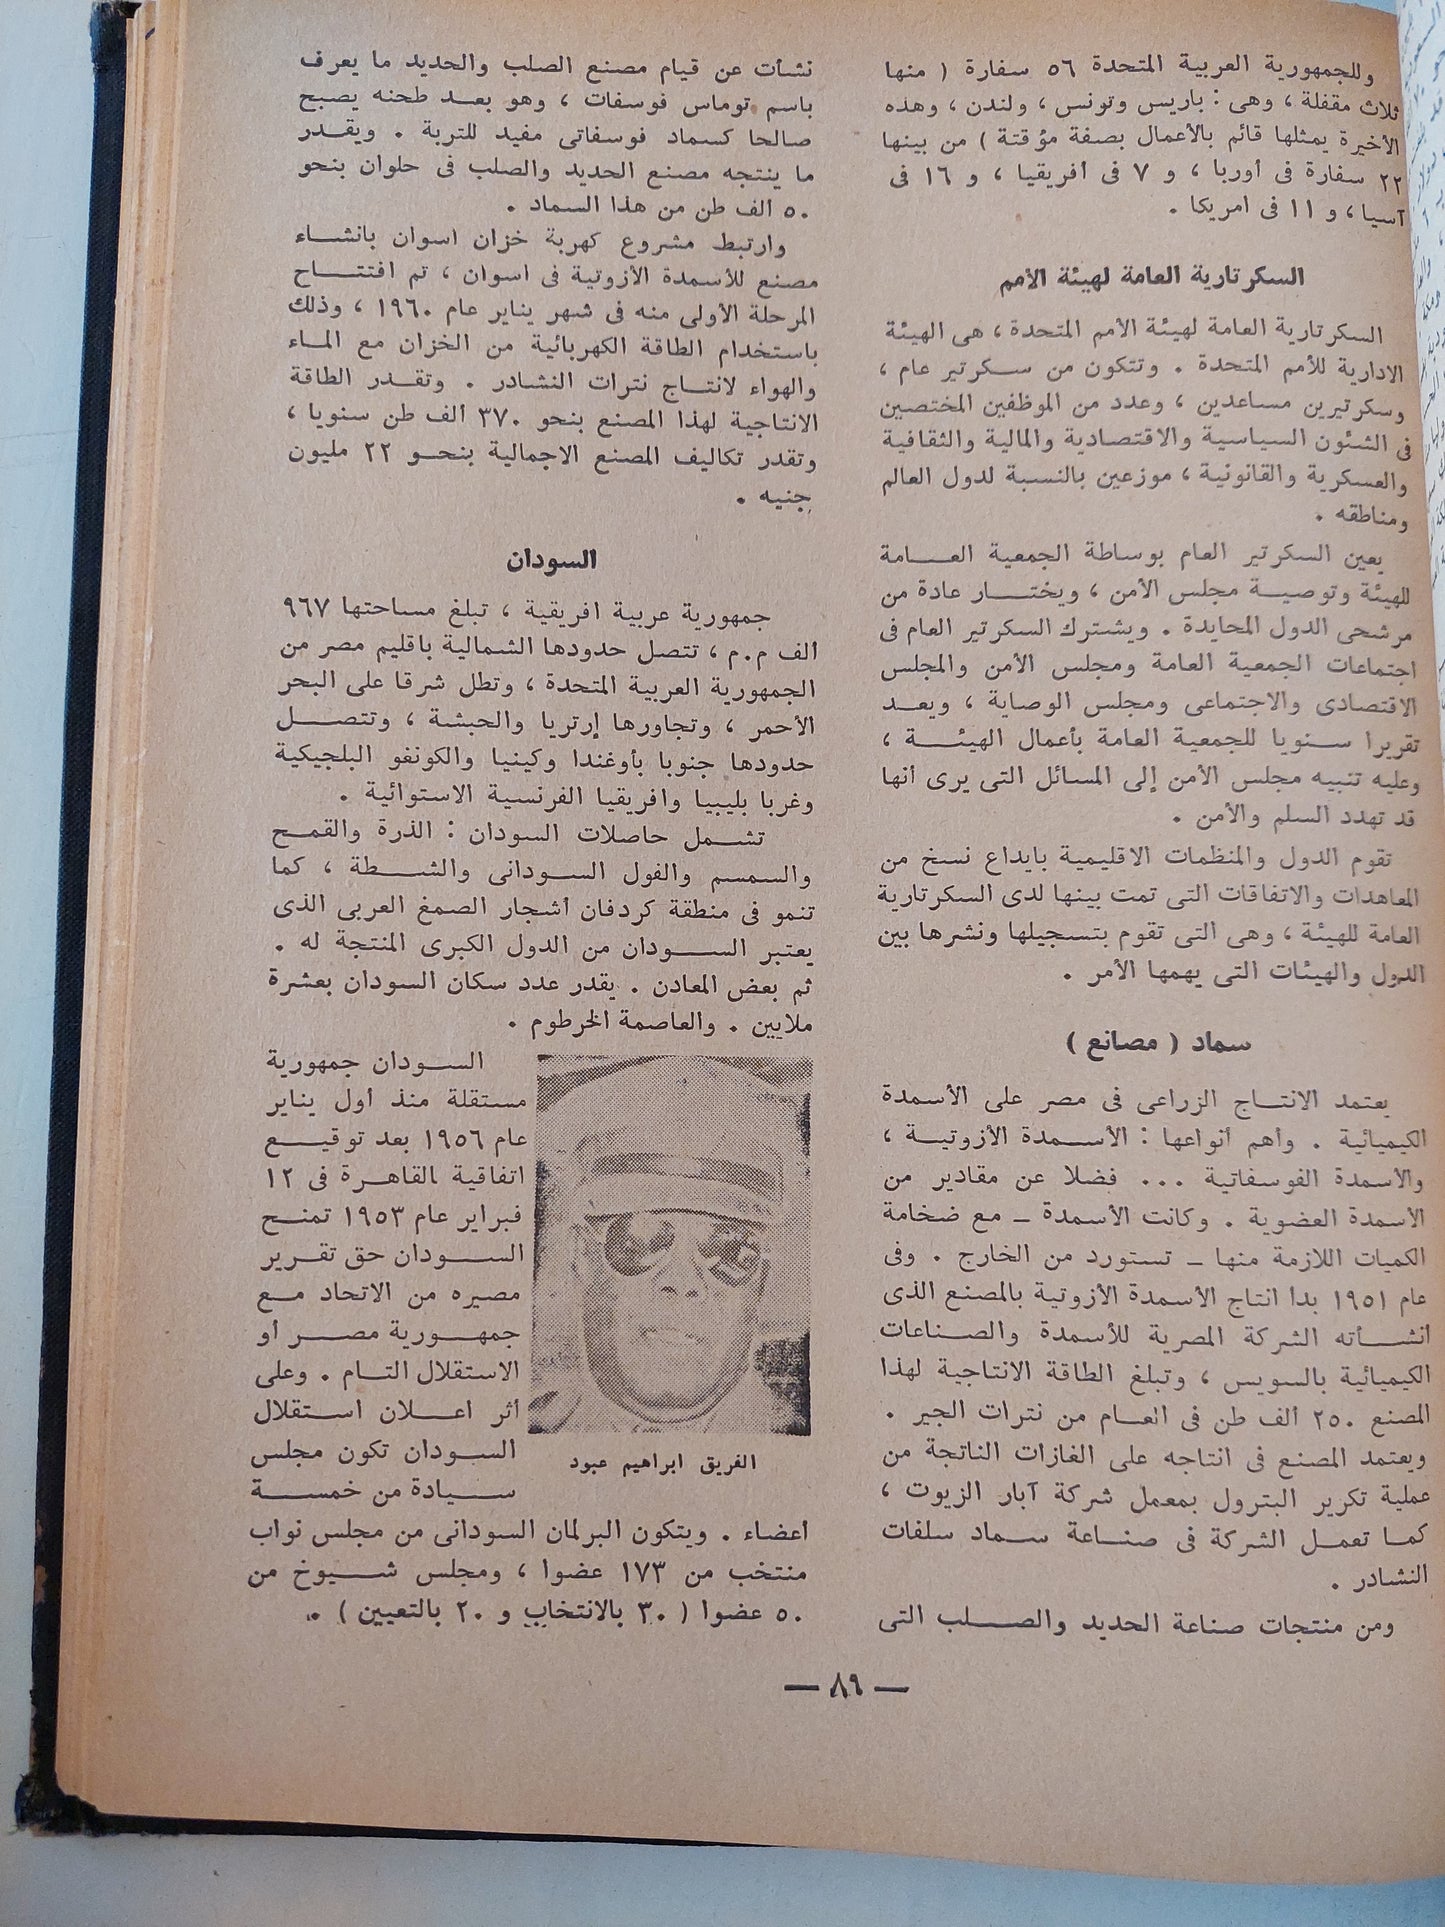 وللجمهورية العربية المتحدة ٥٦ سفارة ( منها
ثلاث مقفلة ، وهى : باريس وتونس ، ولندن ، وهذه
الأخيرة يمثلها قائم بالأعمال بصفة مؤقتة ) من بينها
٢٢ سفارة فى أوربا ، و ٧ فى أفريقيا ، و ١٦ فى
آسيا ، و ١١ فى امريكا .
السكرتارية العامة لهيئة الأمم
السكرتارية العامة لهيئة الأمم المتحدة ، هى الهيئة
الادارية للأمم المتحدة . وتتكون من سكرتير عام ،
وسكرتيرين مساعدين ، وعدد من الموظفين المختصين
فى الشئون السياسية والاقتصادية والمالية والثقافية
والعسكرية والقانونية ، موزعين بالنسبة لدول العالم
ومناطقه .
يعين السكرتير العام بوساطة الجمعية العامة
للهيئة وتوصية مجلس الأمن ، ويختار عادة من
مرشحى الدول المحايدة . ويشترك السكرتير العام فى
اجتماعات الجمعية العامة ومجلس الأمن والمجلس
الاقتصادى والاجتماعى ومجلس الوصاية ، ويعد
تقريرا سنويا للجمعية العامة بأعمال الهيئة ،
وعليه تنبيه مجلس الأمن إلى المسائل التى يرى أنها
قد تهدد السلم والأمن .
تقوم الدول والمنظمات الاقليمية بايداع نسخ من
المعاهدات والاتفاقات التى تمت بينها لدى السكرتارية
العامة للهيئة ، وهى التى تقوم بتسجيلها ونشرها بين
الدول والهيئات التى يهمها الأمر .
سماد ( مصانع )
يعتمد الانتاج الزراعى فى مصر على الأسمدة
الكيميائية . وأهم أنواعها : الأسمدة الأزوتية ،
والأسمدة الفوسفاتية ... فضلا عن مقادير من
الأسمدة العضوية . وكانت الأسمدة – مع ضخامة
الكميات اللازمة منها – تستورد من الخارج . وفى
عام ١٩٥١ بدأ انتاج الأسمدة الأزوتية بالمصنع الذى
أنشأته الشركة المصرية للأسمدة والصناعات
الكيميائية بالسويس ، وتبلغ الطاقة الانتاجية لهذا
المصنع ٢٥٠ ألف طن فى العام من نترات الجير .
ويعتمد المصنع فى انتاجه على الغازات الناتجة من
عملية تكرير البترول بمعمل شركة آبار الزيوت ،
كما تعمل الشركة فى صناعة سماد سلفات
النشادر .
ومن منتجات صناعة الحديد والصلب التى
نشأت عن قيام مصنع الصلب والحديد ما يعرف
باسم توماس فوسفات ، وهو بعد طحنه يصبح
صالحا كسماد فوسفاتى مفيد للتربة . ويقدر
ما ينتجه مصنع الحديد والصلب فى حلوان بنحو
٥٠ ألف طن من هذا السماد .
وارتبط مشروع كهربة خزان اسوان بانشاء
مصنع للأسمدة الأزوتية فى اسوان ، تم افتتاح
المرحلة الأولى منه فى شهر يناير عام ١٩٦٠ ، وذلك
باستخدام الطاقة الكهربائية من الخزان مع الماء
والهواء لانتاج نترات النشادر . وتقدر الطاقة
الانتاجية لهذا المصنع بنحو ٣٧٠ ألف طن سنويا ،
وتقدر تكاليف المصنع الاجمالية بنحو ٢٢ مليون
جنيه .
السودان
جمهورية عربية افريقية ، تبلغ مساحتها ٩٦٧
ألف م.م ، تتصل حدودها الشمالية باقليم مصر من
الجمهورية العربية المتحدة ، وتطل شرقا على البحر
الأحمر ، وتجاورها إرتريا والحبشة ، وتتصل
حدودها جنوبا بأوغندا وكينيا والكونغو البلجيكية
وغربا بليبيا وافريقيا الفرنسية الاستوائية .
تشمل حاصلات السودان : الذرة والقمح
والسمسم والفول السودانى والشطة ، كما
تنمو فى منطقة كردفان أشجار الصمغ العربى الذى
يعتبر السودان من الدول الكبرى المنتجة له .
ثم بعض المعادن . يقدر عدد سكان السودان بعشرة
ملايين . والعاصمة الخرطوم .
السودان جمهورية
مستقلة منذ أول يناير
عام ١٩٥٦ بعد توقيع
اتفاقية بالقاهرة فى ١٢
فبراير عام ١٩٥٣ تمنح
السودان حق تقرير
مصيره من الاتحاد مع
جمهورية مصر أو
الاستقلال التام . وعلى
أثر اعلان استقلال
السودان تكون مجلس
سيادة من خمسة
الفريق ابراهيم عبود
أعضاء . ويتكون البرلمان السودانى من مجلس نواب
منتخب من ١٧٣ عضوا ، ومجلس شيوخ من
٥٠ عضوا ( ٣٠ بالانتخاب و ٢٠ بالتعيين ) .
— ٨٩ —